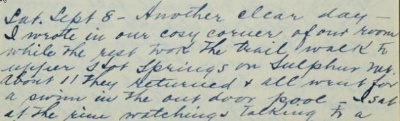 Sat. Sept 8 - Another clear day -
I wrote in our cosy corner of our room
while the rest took the trail walk to
upper Hot Springs on Sulphur Mt.
About 11 they returned & all went for
a swim in the out door pool - I sat
at the rim watching & talking to a